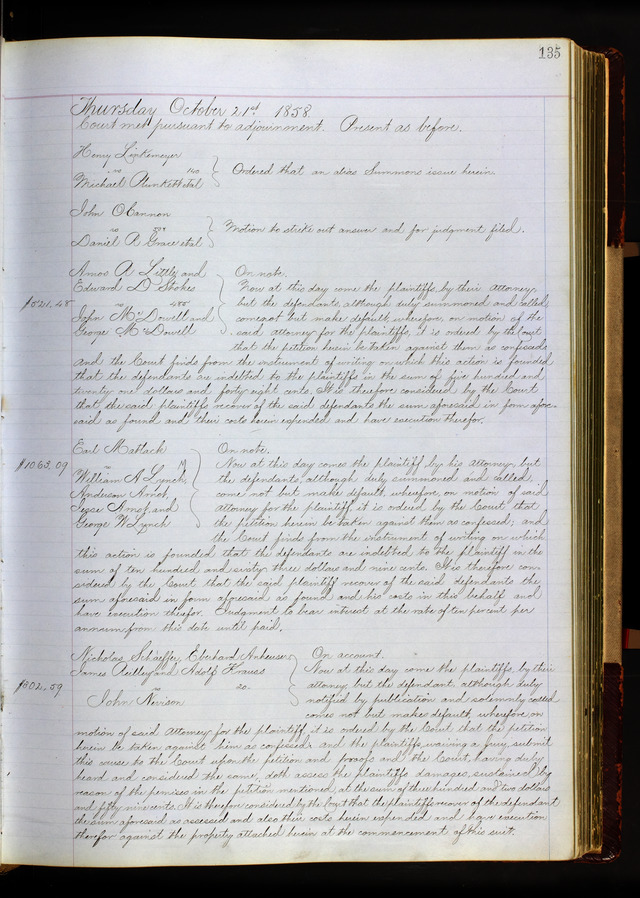 135
Thursday October 21st 1858
Court met pursuant to adjournment. Present as before.
Henry Linkemeyer
vs 140
Michael Plunkett et al
Ordered that an alias Summons issue herein.
John O'Bannon
vs
Daniel R Grace et al
Motion to strike out answer and for judgment filed.
Amos R Little and
Edward D Stokes
vs 455
John McDowell and
George McDowell
$521.48
On note.
Now at this day come the plaintiffs by their attorney,
but the defendants, although duly summoned and called,
come not but make default, wherefore, on motion of the
said attorney for the plaintiffs, it is ordered by the Court
that the petition herein be taken against them as confessed;
and the Court finds from the instrument of writing on which this action is founded
that the defendants are indebted to the plaintiffs in the sum of five hundred and
twenty one dollars and forty eight cents. It is therefore considered by the Court
that the said plaintiffs recover of the said defendants the sum aforesaid in form afore-
said as found and their costs herein expended and have execution therefor.
Earl Matlack
vs 17
William A Lynch,
Anderson Arnot,
Jesse Arnot, and
George W Lynch
$1063.09
On note.
Now at this day comes the plaintiff by his attorney, but
the defendants, although duly summoned and called,
come not but make default, wherefore, on motion of said
attorney for the plaintiff, it is ordered by the Court that
the petition herein be taken against them as confessed; and
the Court finds from the instrument of writing on which
this action is founded that the defendants are indebted to the plaintiff in the
sum of ten hundred and sixty three dollars and nine cents. It is therefore con-
sidered by the Court that the said plaintiff recover of the said defendants the
sum aforesaid in form aforesaid as found and his costs in this behalf and
have execution therefor. Judgment to bear interest at the rate of ten percent per
annum from this date until paid.
Nicholas Schaeffer, Eberhard Anheuser,
James Reilley and Adolf Krauss
vs 20.
John Nevison
$302.59
On account.
Now at this day come the plaintiffs, by their
attorney but the defendant, although duly
notified by publication and solemnly called
comes not but makes default, wherefore, on
motion of said attorney for the plaintiff, it is ordered by the Court that the petition
herein be taken against him as confessed; and the plaintiffs, waiving a jury, submit
this cause to the Court upon the petition and proofs and the Court, having duly
heard and considered the same, doth assess the plaintiffs damages, sustained by
reason of the premises in the petition mentioned, at the sum of three hundred and two dollars
and fifty nine cents. It is therefore considered by the Court that the plaintiffs recover of the defendant
the sum aforesaid as assessed and also their costs herein expended and have execution
therefor against the property attached herein at the commencement of this suit.